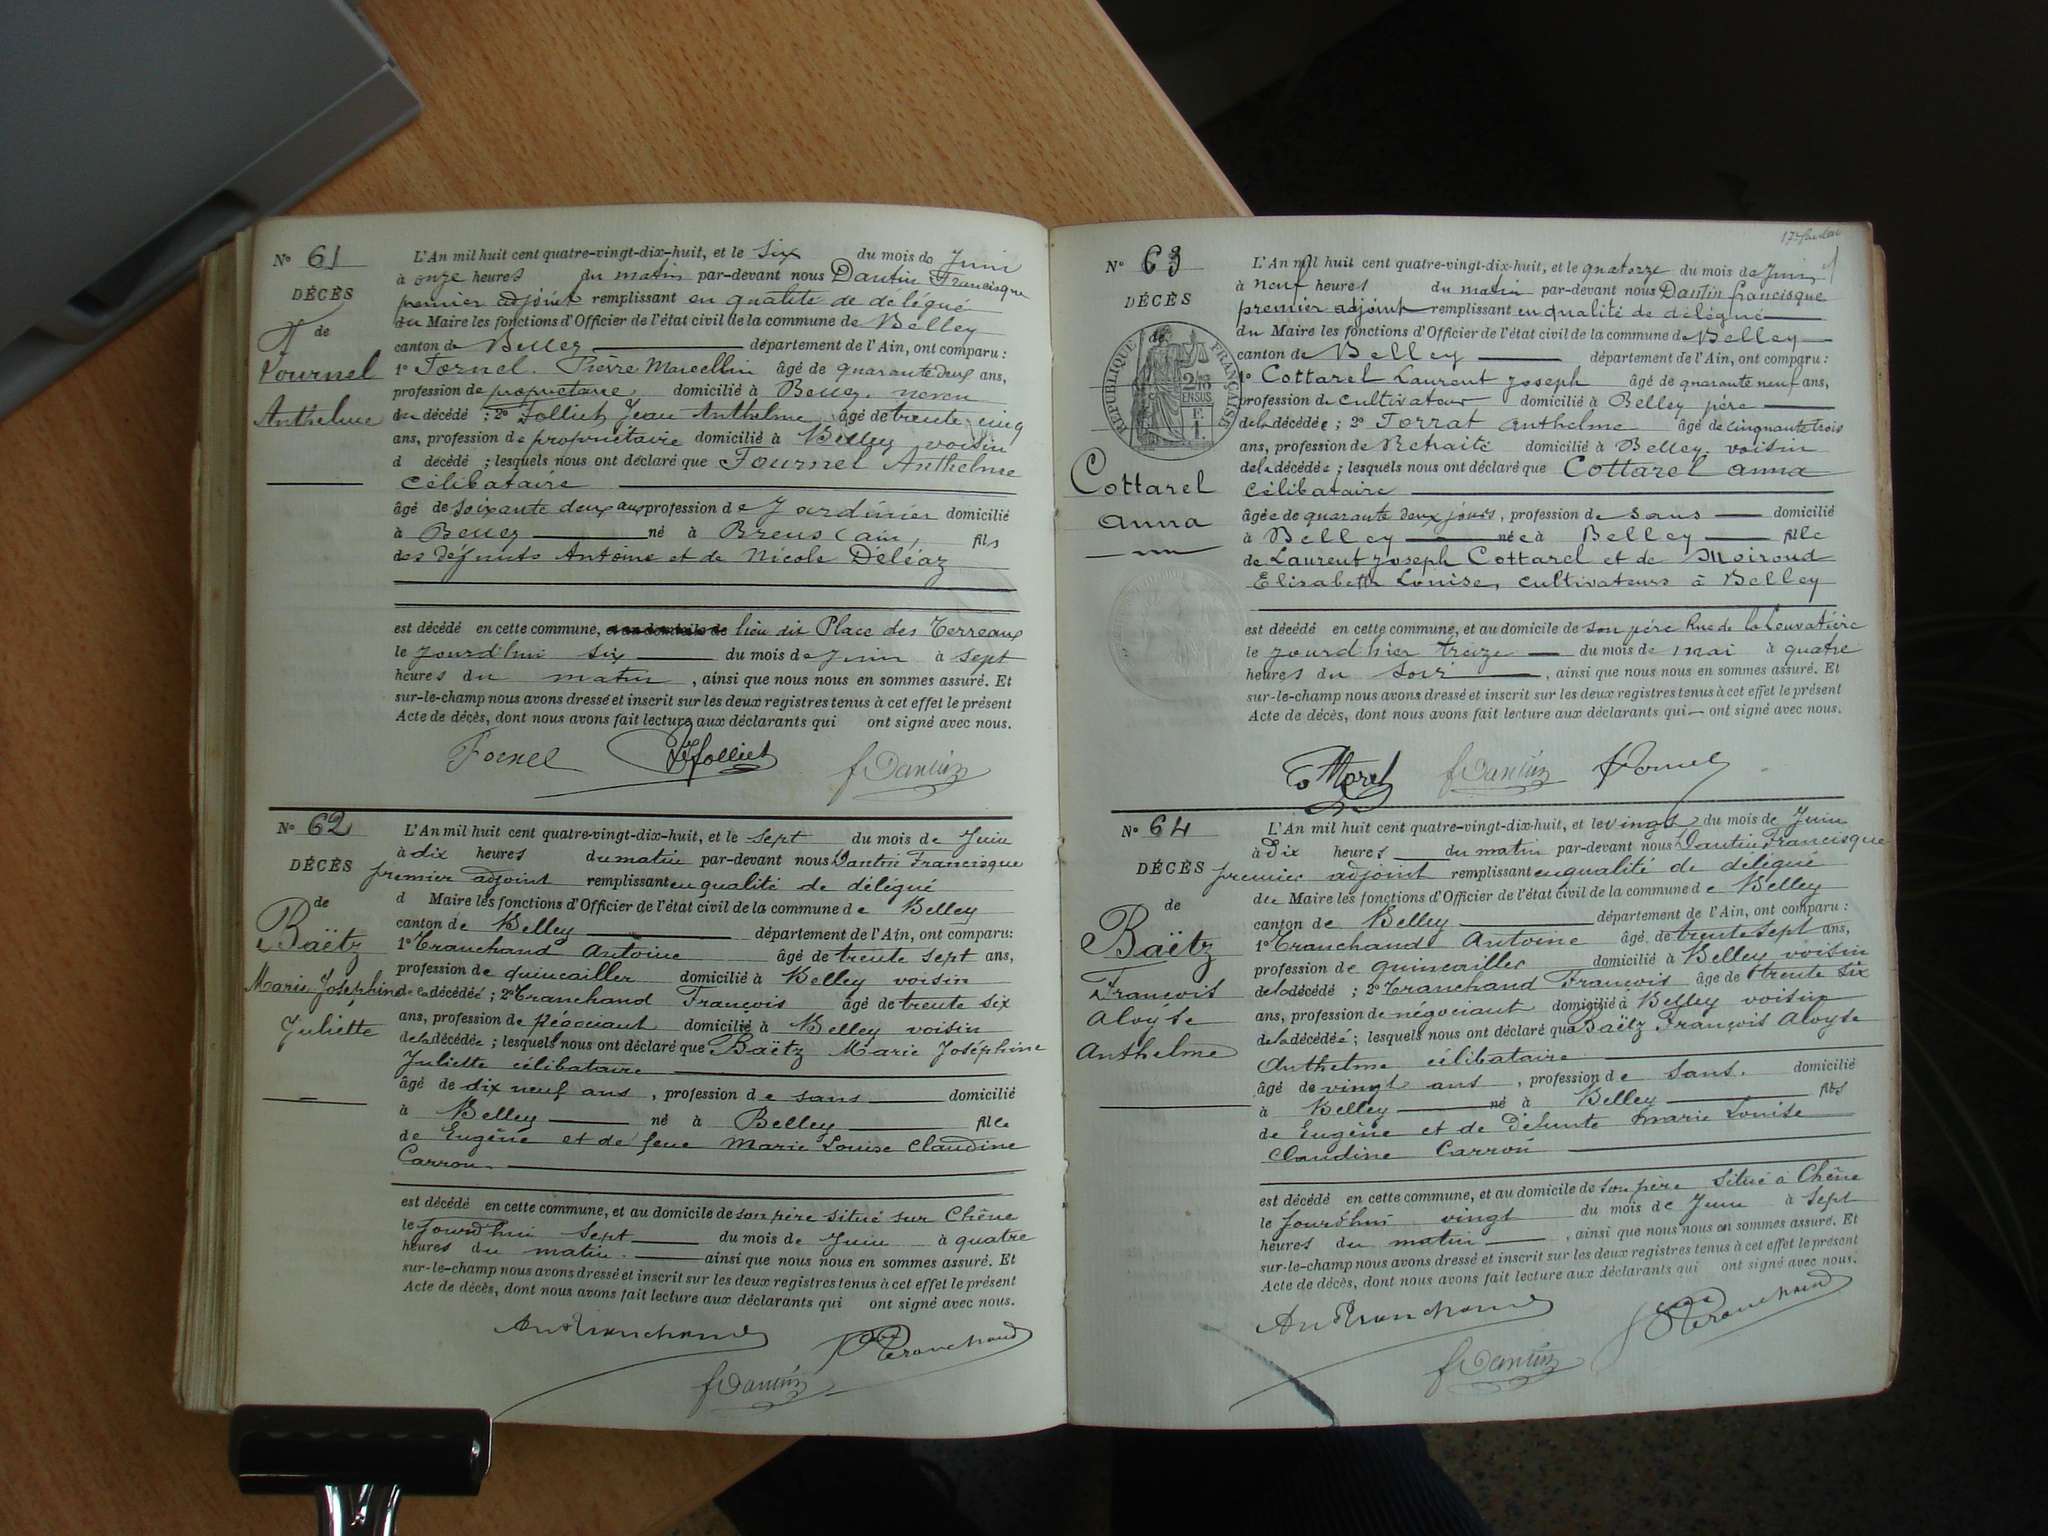 N° 61
DÉCÈS
de
Fournel
Anthelme
L'An mil huit cent quatre-vingt-dix-huit, et le six du mois de Juin
à onze heures du matin par-devant nous Dantin Francisque
premier adjoint remplissant en qualité de délégué
du Maire les fonctions d'Officier de l'état civil de la commune de Belley
canton de Belley département de l'Ain, ont comparu :
1° Fornel Pierre Marcellin âgé de quarante deux ans,
profession de propriétaire, domicilié à Belley, neveu
du décédé ; 2° Folliet Jean Anthelme âgé de trente cinq
ans, profession de propriétaire domicilié à Belley voisin
d décédé ; lesquels nous ont déclaré que Fournel Anthelme
Célibataire
âgé de soixante deux ans profession de Jardinier domicilié
à Belley né à Brens (ain, fils
des défunts Antoine et de Nicole Déléaz
est décédé en cette commune, et au domicile de lieu dit Place des Terreaux
le jourd'hui six du mois de Juin à sept
heures du matin, ainsi que nous nous en sommes assuré. Et
sur-le-champ nous avons dressé et inscrit sur les deux registres tenus à cet effet le présent
Acte de décès, dont nous avons fait lecture aux déclarants qui ont signé avec nous.
Fornel Folliet f Dantin
N° 62
DÉCÈS
de
Baëtz
Marie Joséphine
Juliette
L'An mil huit cent quatre-vingt-dix-huit, et le sept du mois de Juin
à dix heures du matin par-devant nous Dantin Francisque
premier adjoint remplissant en qualité de délégué
d Maire les fonctions d'Officier de l'état civil de la commune de Belley
canton de Belley département de l'Ain, ont comparu:
1° Tranchand Antoine âgé de trente sept ans,
profession de quincailler domicilié à Belley voisin
de la décédée ; 2° Tranchand François âgé de trente six
ans, profession de négociant domicilié à Belley voisin
de la décédée ; lesquels nous ont déclaré que Baëtz Marie Joséphine
Juliette célibataire
âgé de dix neuf ans, profession de sans domicilié
à Belley né à Belley fille
de Eugène et de feue Marie Louise Claudine
Carron
est décédé en cette commune, et au domicile de son père situé sur Chêne
le jourd'hui sept du mois de Juin à quatre
heures du matin ainsi que nous nous en sommes assuré. Et
sur-le-champ nous avons dressé et inscrit sur les deux registres tenus à cet effet le présent
Acte de décès, dont nous avons fait lecture aux déclarants qui ont signé avec nous.
An Tranchand Tranchand
f Dantin
N° 63
DÉCÈS
de
RÉPUBLIQUE FRANÇAISE
Cottarel
anna
L'An mil huit cent quatre-vingt-dix-huit, et le quatorze du mois de Juin
à neuf heures du matin par-devant nous Dantin francisque
premier adjoint remplissant en qualité de délégué
du Maire les fonctions d'Officier de l'état civil de la commune de Belley
canton de Belley département de l'Ain, ont comparu :
1° Cottarel Laurent Joseph âgé de quarante neuf ans,
profession de cultivateur domicilié à Belley père
de la décédée ; 2° Forrat anthelme âgé de cinquante trois
ans, profession de Retraité domicilié à Belley, voisin
de la décédée ; lesquels nous ont déclaré que Cottarel anna
Célibataire
âgée de quarante deux jours, profession de sans domicilié
à Belley née à Belley fille
de Laurent Joseph Cottarel et de Moiroud
Elisabeth Louise, cultivateurs à Belley
est décédé en cette commune, et au domicile de son père Rue de la Louvatière
le jourd'hier treize du mois de mai à quatre
heures du soir, ainsi que nous nous en sommes assuré. Et
sur-le-champ nous avons dressé et inscrit sur les deux registres tenus à cet effet le présent
Acte de décès, dont nous avons fait lecture aux déclarants qui ont signé avec nous.
Cottarel f Dantin
N° 64
DÉCÈS
de
Baëtz
François
Aloyse
Anthelme
L'An mil huit cent quatre-vingt-dix-huit, et le vingt du mois de Juin
à Dix heures du matin par-devant nous Dantin Francisque
premier adjoint remplissant en qualité de délégué
du Maire les fonctions d'Officier de l'état civil de la commune de Belley
canton de Belley département de l'Ain, ont comparu :
1° Tranchand Antoine âgé de trente sept ans,
profession de quincailler domicilié à Belley voisin
de la décédé ; 2° Tranchand François âgé de trente six
ans, profession de négociant domicilié à Belley voisin
de la décédée ; lesquels nous ont déclaré que Baëtz François Aloyse
Anthelme célibataire
âgé de vingt ans, profession de sans. domicilié
à Belley né à Belley fils
de Eugène et de Défunte marie Louise
Claudine Carron
est décédé en cette commune, et au domicile de son père situé à Chêne
le jourd'hui vingt du mois de Juin à sept
heures du matin, ainsi que nous nous en sommes assuré. Et
sur-le-champ nous avons dressé et inscrit sur les deux registres tenus à cet effet le présent
Acte de décès, dont nous avons fait lecture aux déclarants qui ont signé avec nous.
An Tranchand Tranchand
f Dantin